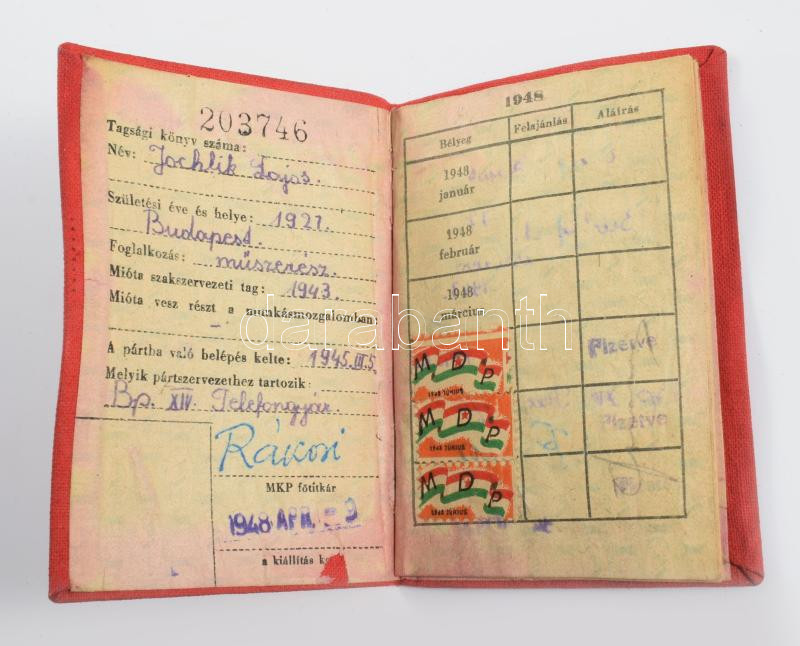 203746
Tagsági könyv száma:
Név: Jochlik Lajos.
Születési éve és helye: 1927.
Budapest.
Foglalkozás: műszerész.
Mióta szakszervezeti tag: 1943.
Mióta vesz részt a munkásmozgalomban:
-
A pártba való belépés kelte: 1945.III.5.
Melyik pártszervezethez tartozik:
Bp. XIV. Telefongyár.
Rákosi
MKP főtitkár
1948 APR. - 9
a kiállítás
1948
Bélyeg Felajánlás Aláírás
1948
január
1948
február
1948
március
MDP
1948 JÚNIUS
Fizetve
MDP
1948 JÚNIUS
Fizetve
MDP
1948 JÚNIUS
darabanth